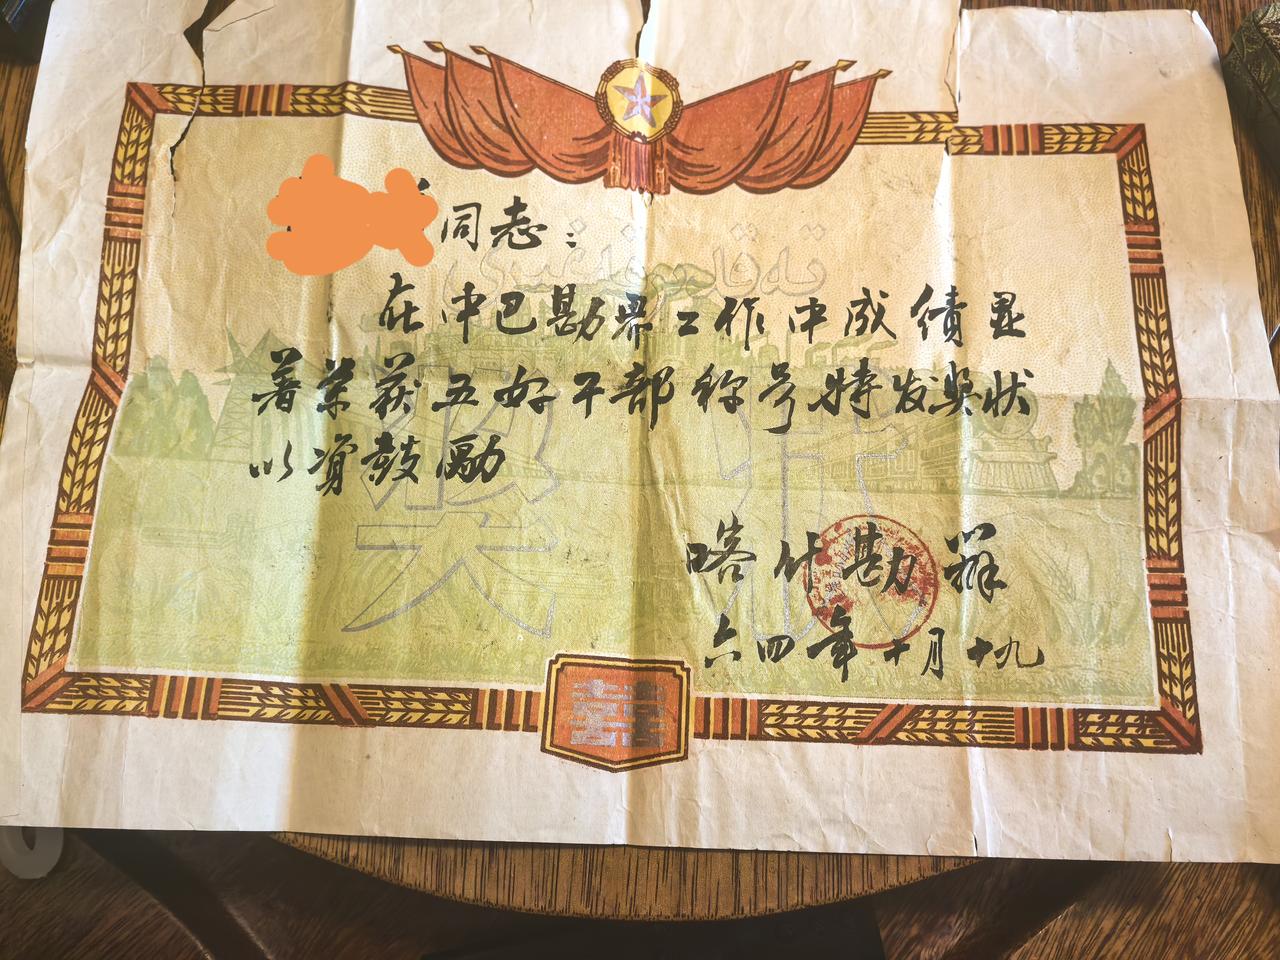 同志：
在中巴勘界工作中成绩显
著荣获五好干部称号特发奖状
以资鼓励
奖状
喀什勘群
六四年十月十九